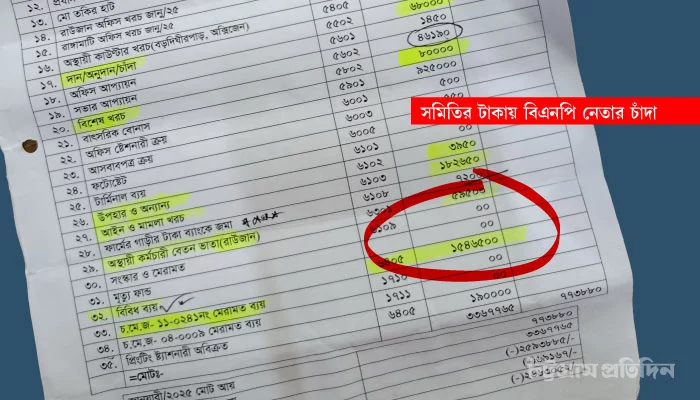 ১২. প্রধান
১৩. মো তকির হাট ৫৪০৫ ৬৮০০০
১৪. রাউজান অফিস খরচ জানু/২৫ ৫৫০২ ১৪৫০
১৫. রাঙ্গামাটি অফিস খরচ জানু/২৫ ৫৬০১ ৪৬১৯০
১৬. অস্থায়ী কাউন্টার খরচ(বড়দিঘীরপাড়, অক্সিজেন) ৫৬০২ ৮০০০০
১৭. দান/অনুদান/চাঁদা ৫৮০২ ৯২৫০০০
১৮. অফিস আপ্যায়ন ৫৯০১ ৫০০
১৯. সভার আপ্যায়ন ৬০০১
২০. বিশেষ খরচ ৬০০৩
২১. বাৎসরিক বোনাস ৬০০৫ ০০
২২. অফিস ষ্টেশনারী ক্রয় ৬১০১ ৩৯৫০
২৩. আসবাবপত্র ক্রয় ৬১০২ ১৮২৬৫০
২৪. ফটোষ্টেট ৬১০৩
২৫. টার্মিনাল ব্যয় ৬১০৮ ৫৯৫০০
২৬. উপহার ও অন্যান্য ৬৩০১ ০০
২৭. আইন ও মামলা খরচ ৬১০৯ ০০
২৮. ফার্মের গাড়ীর টাকা ব্যাংকে জমা
২৯. অস্থায়ী কর্মচারী বেতন ভাতা(রাউজান) ১৫৪৬৫০০
৩০. সংস্কার ও মেরামত ১৭১০ ০০
৩১. মৃত্যু ফান্ড ১৭১১ ০০
৩২. বিবিধ ব্যয় ৬৪০৫ ১৯০০০০
৩৩. চ.মে.জ- ১১-০২৪১নং মেরামত ব্যয় ৩৩৬৭৭৬৫ ৭৭৩৮৮০
৩৪. চ.মে.জ- ০৪-০০০৯ মেরামত ব্যয়
৩৫. প্রিন্টিং ষ্ট্যাশনারী অবিক্রত ৭৭৩৮৮০
=মোটঃ- ৩৩৬৭৭৬৫
(-)২৫৯৩৮৮৫/-
জানুয়ারী/২০২৫ মোট আয় (-)৬৯১৬৭/-
সমিতির টাকায় বিএনপি নেতার চাঁদা
চট্টগ্রাম প্রতিদিন